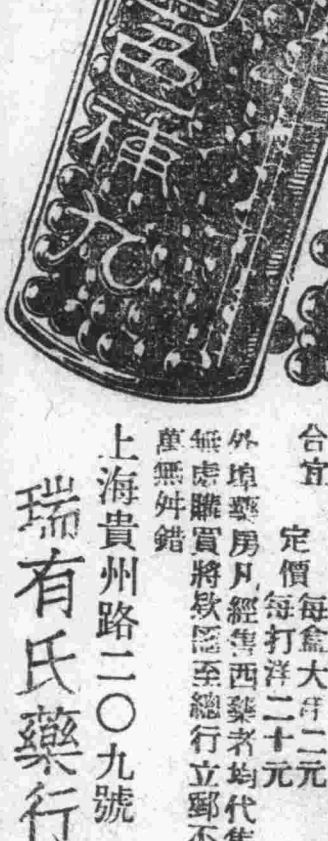 色補丸
合宜
定價
每盒大洋二元
每打洋二十元
外埠藥房凡經售西藥者均代售
無處購買將欵匯至總行立郵不
萬無舛錯
上海貴州路二〇九號
瑞有氏藥行